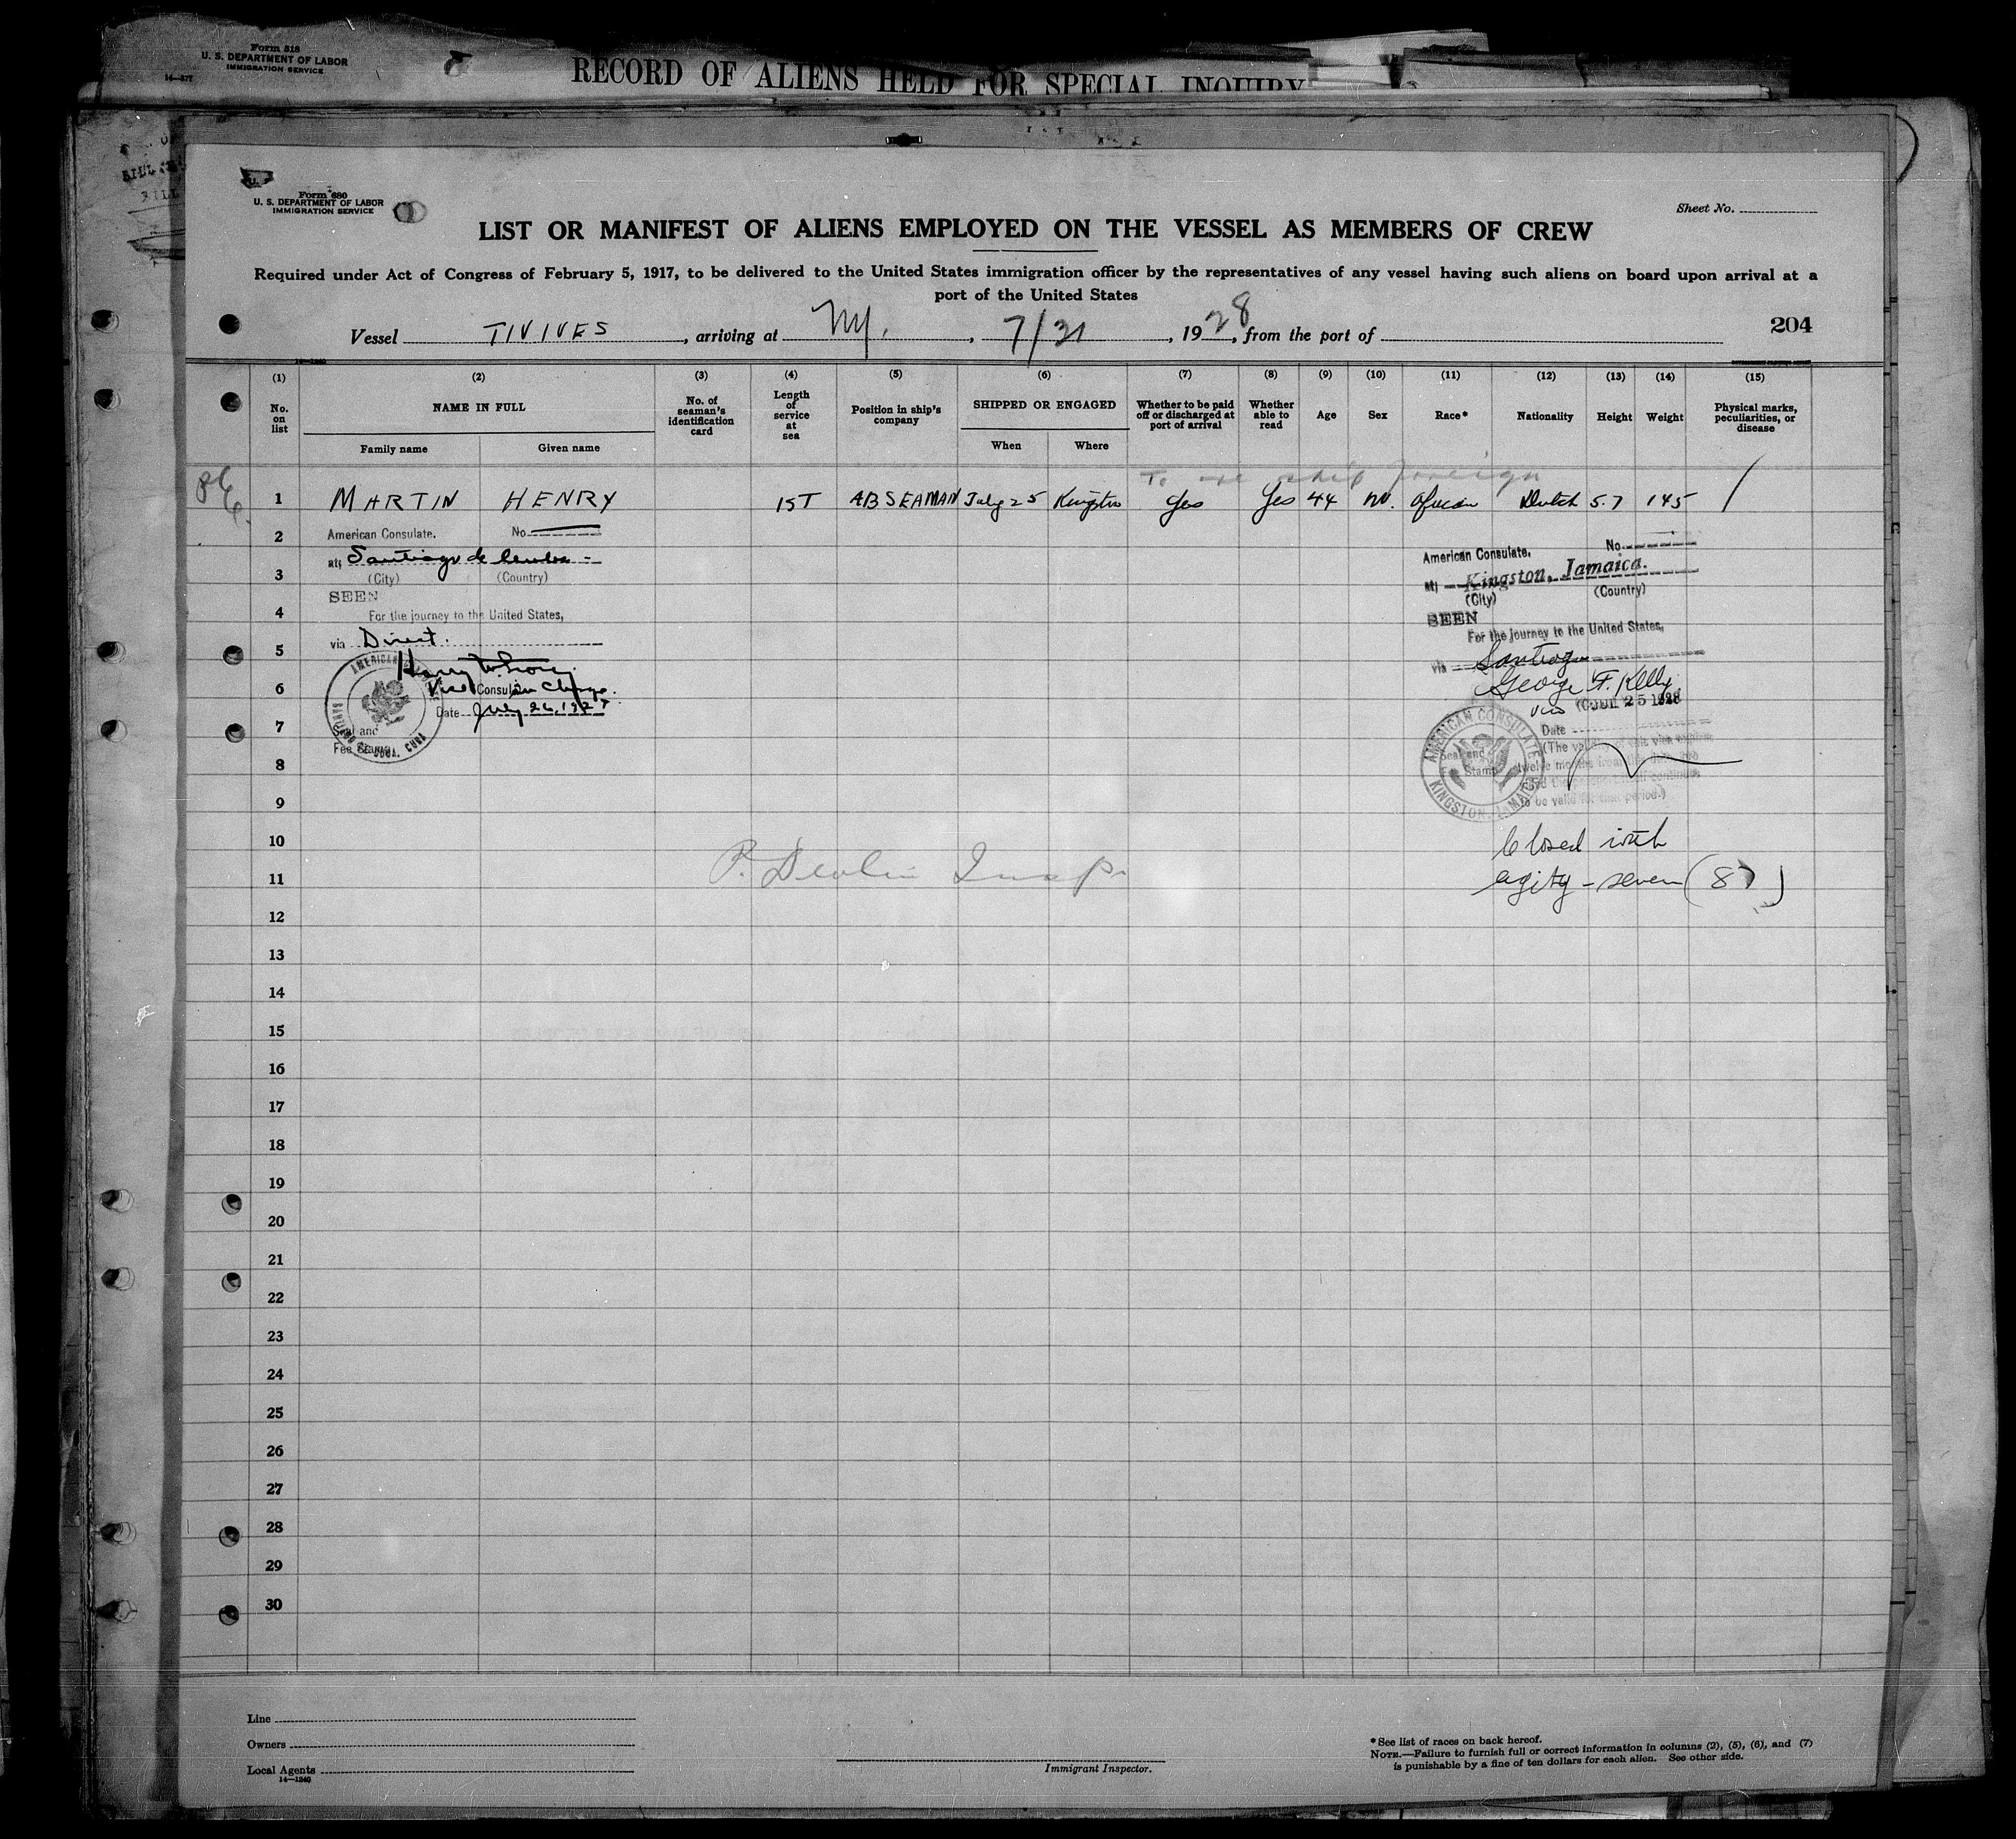 Form 518
U. S. DEPARTMENT OF LABOR
IMMIGRATION SERVICE
14—577
RECORD OF ALIENS HELD FOR SPECIAL INQUIRY
Form 680
U. S. DEPARTMENT OF LABOR
IMMIGRATION SERVICE
Sheet No.
LIST OR MANIFEST OF ALIENS EMPLOYED ON THE VESSEL AS MEMBERS OF CREW
Required under Act of Congress of February 5, 1917, to be delivered to the United States immigration officer by the representatives of any vessel having such aliens on board upon arrival at a
port of the United States
Vessel TIVIVES, arriving at NY., 7/31, 1928, from the port of
204
14—1240
(1) (2) (3) (4) (5) (6) (7) (8) (9) (10) (11) (12) (13) (14) (15)
No. on list
NAME IN FULL
Family name Given name
No. of seaman's identification card
Length of service at sea
Position in ship's company
SHIPPED OR ENGAGED
When Where
Whether to be paid off or discharged at port of arrival
Whether able to read
Age
Sex
Race*
Nationality
Height
Weight
Physical marks, peculiarities, or disease
To re ship foreign
1 MARTIN HENRY 1ST AB SEAMAN July 25 Kingston Yes Yes 44 M. African Dutch 5.7 145
2
3
4
5
6
7
8
9
10
11
12
13
14
15
16
17
18
19
20
21
22
23
24
25
26
27
28
29
30
American Consulate. No
at; Santiago de Cuba
(City) (Country)
SEEN
For the journey to the United States,
via Direct.
Vice Consul in Charge.
Date July 26, 192
Seal and
Fee Stamp
AMERICAN
SANTIAGO DE CUBA, CUBA
American Consulate, No.
at; Kingston, Jamaica.
(City) (Country)
SEEN
For the journey to the United States,
via Santiago
George F. Kelly
Vice
JUL 25 1928
Date
(The validity of this visa expires
twelve months from this date
to be valid for that period.)
Seal and
Stamp
AMERICAN CONSULATE
KINGSTON, JAMAICA
Closed with
P. Devlin Insp.
eigty-seven (87)
Line
Owners
Local Agents
14—1240
Immigrant Inspector.
*See list of races on back hereof.
NOTE.—Failure to furnish full or correct information in columns (2), (5), (6), and (7)
is punishable by a fine of ten dollars for each alien. See other side.